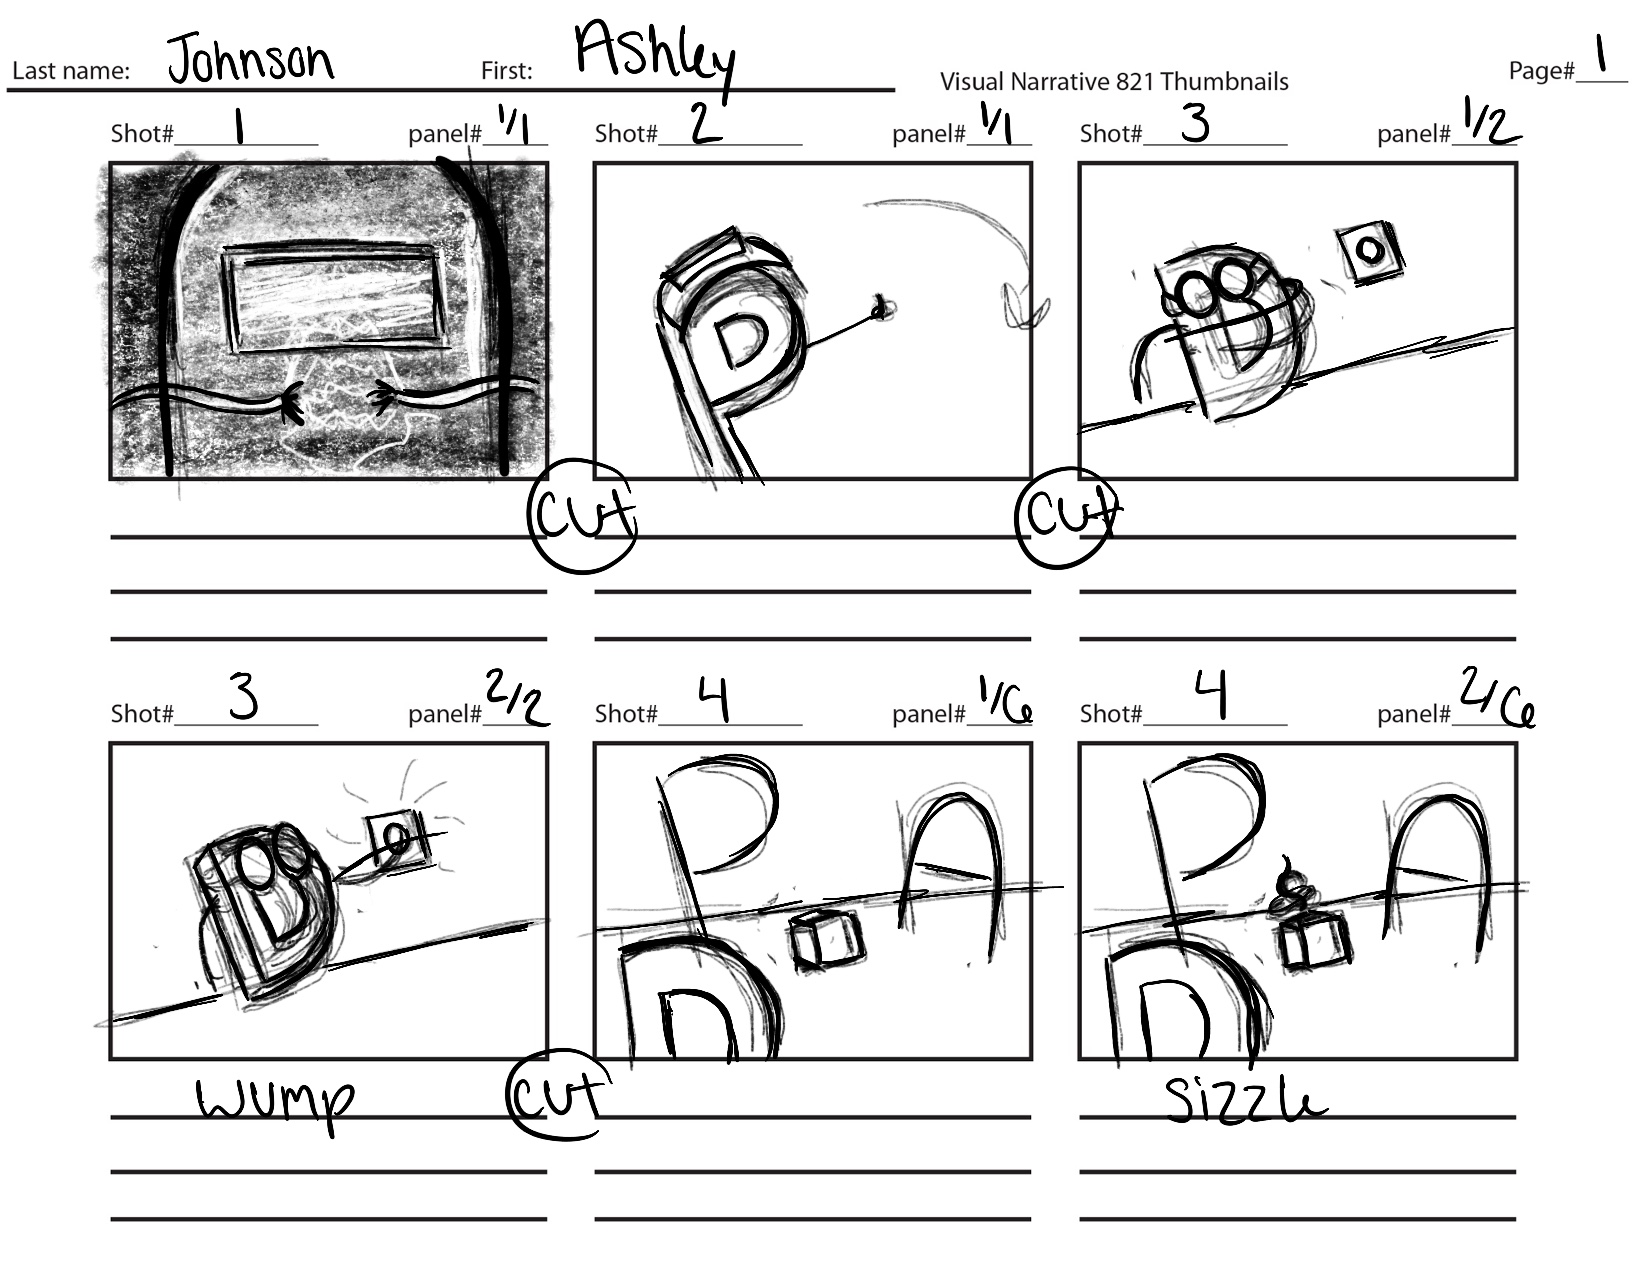 Last name: Johnson First: Ashley Visual Narrative 821 Thumbnails Page# 1
Shot# 1 panel# 1/1 Shot# 2 panel# 1/1 Shot# 3 panel# 1/2
P B
cut cut
Shot# 3 panel# 2/2 Shot# 4 panel# 1/6 Shot# 4 panel# 2/6
B P A P A
D D
wump cut sizzle